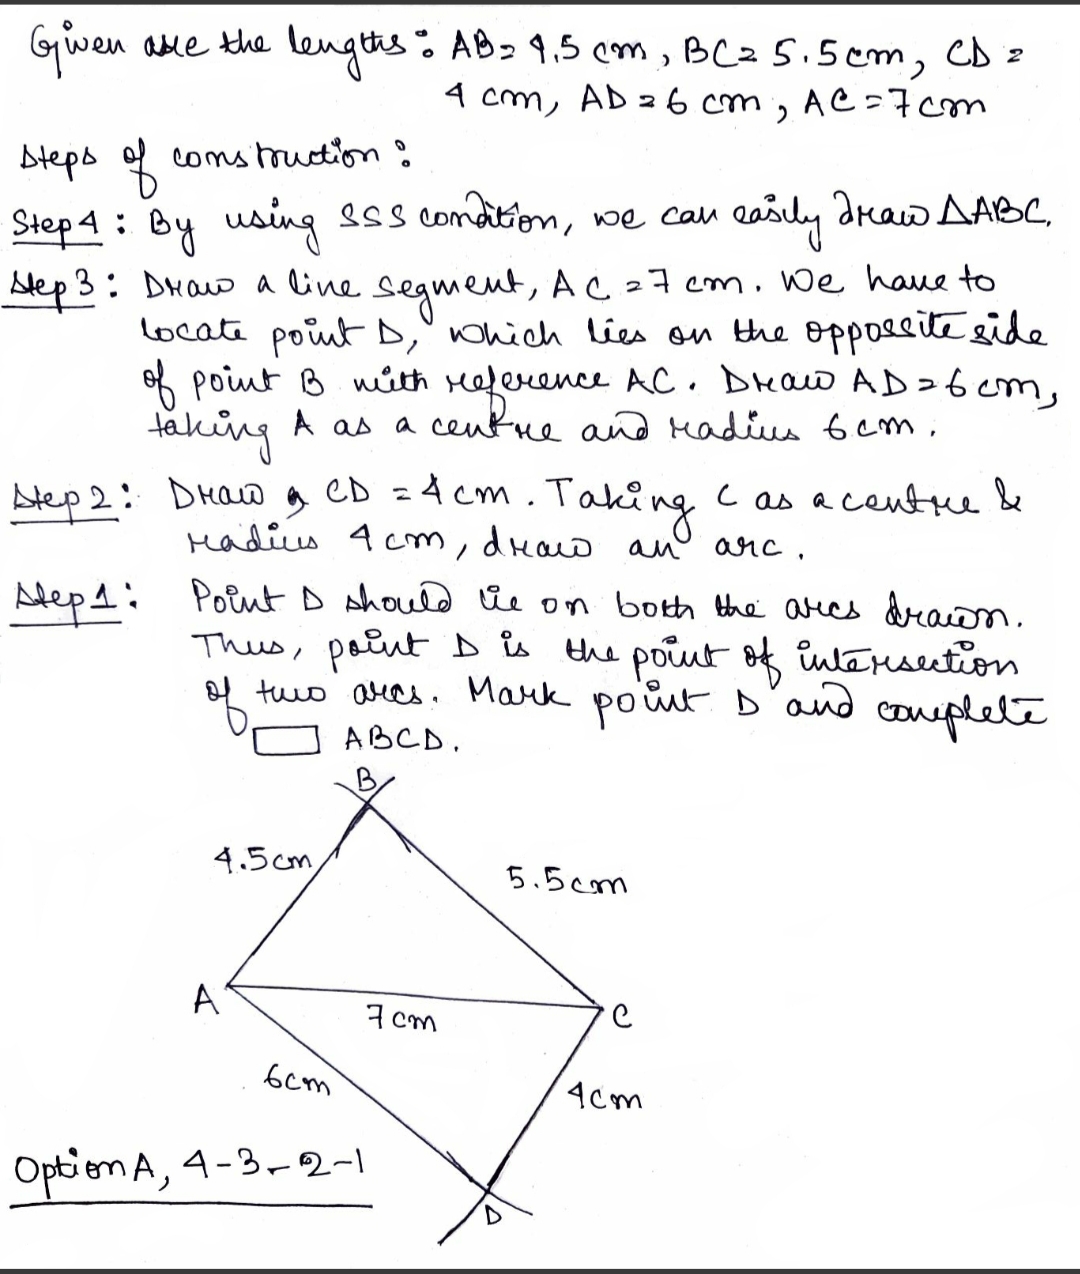 Given are the lengths: AB = 4.5 cm, BC = 5.5 cm, CD =
4 cm, AD = 6 cm, AC = 7 cm
Steps of construction:
Step 4: By using SSS condition, we can easily draw ΔABC.
Step 3: Draw a line segment, AC = 7 cm. We have to
locate point D, which lies on the oppossite side
of point B with reference AC. Draw AD = 6 cm,
taking A as a centre and radius 6 cm.
Step 2: Draw CD = 4 cm. Taking C as a centre &
radius 4 cm, draw an arc.
Step 1: Point D should lie on both the arcs drawn.
Thus, point D is the point of intersection
of two arcs. Mark point D and complete
▭ ABCD.
B
4.5 cm
5.5 cm
A
7 cm
C
6 cm
4 cm
Option A, 4-3-2-1
D